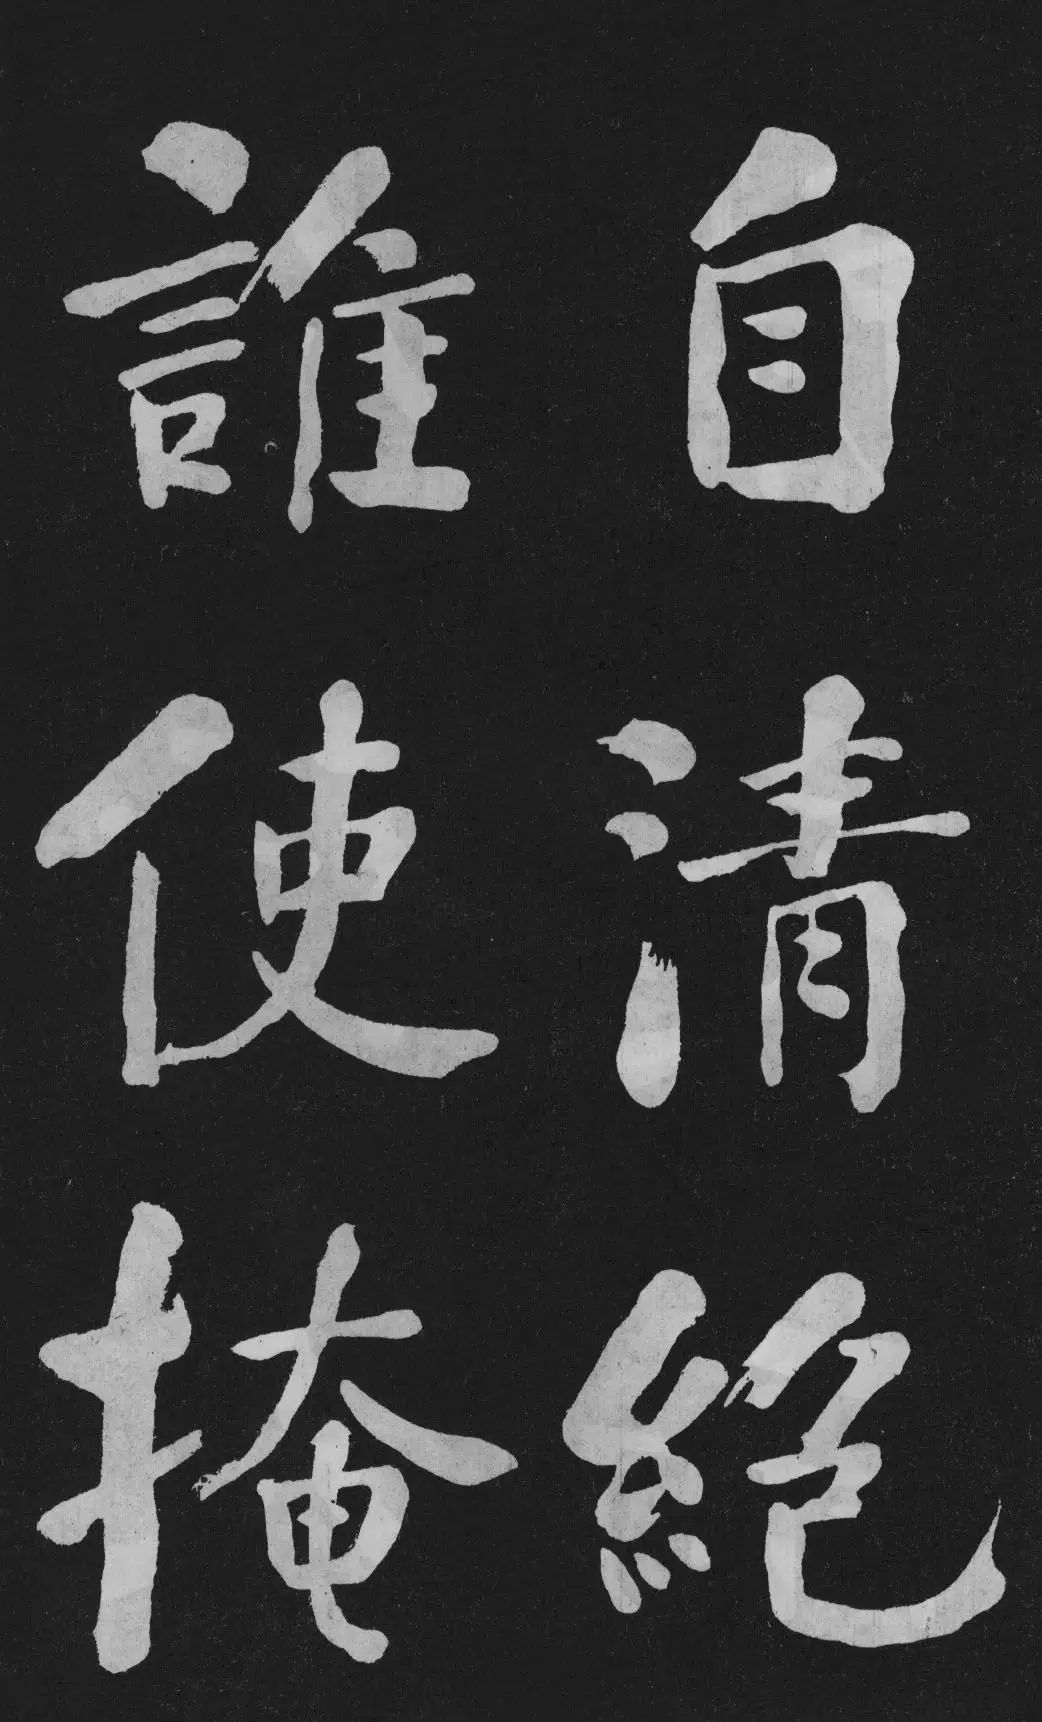 自清絕
誰使掩